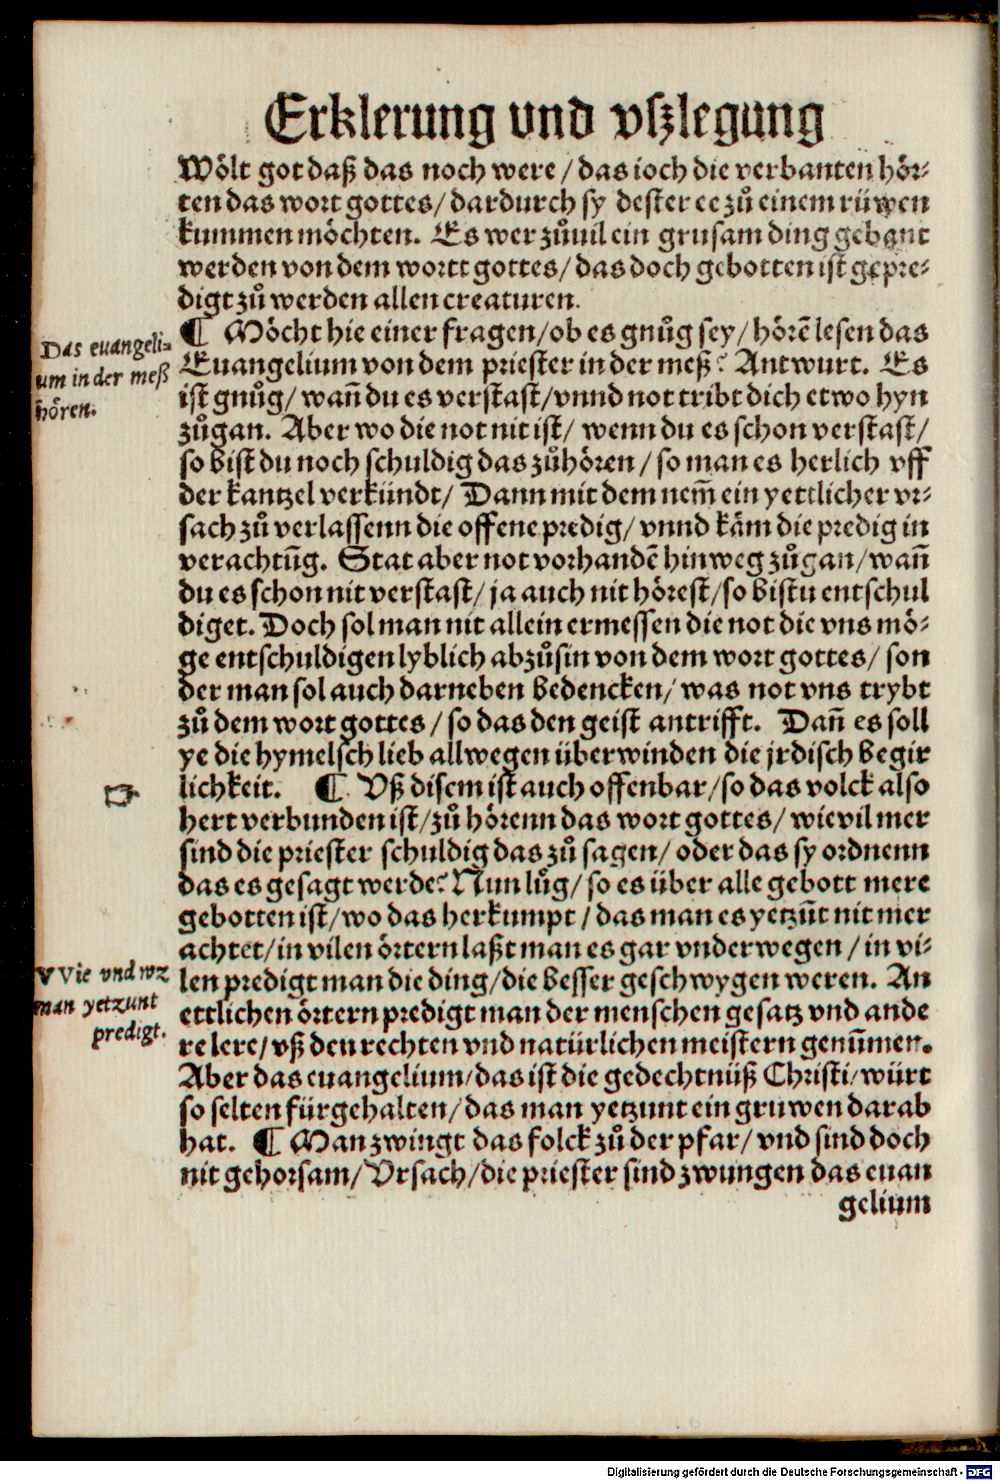 Erklerung und vſzlegung
Wölt got daß das noch were / das ioch die verbanten hör⸗
ten das wort gottes / dardurch ſy deſter ee zů einem rüwen
kummen möchten. Es wer zůuil ein gruſam ding gebant
werden von dem wortt gottes / das doch gebotten iſt gepre⸗
digt zů werden allen creaturen.
Das euangeli⸗
um in der meß
hören.
¶ Möcht hie einer fragen / ob es gnůg ſey / hörẽ leſen das
Euangelium von dem prieſter in der meß? Antwurt. Es
iſt gnůg / wañ du es verſtaſt / vnnd not tribt dich etwo hyn
zůgan. Aber wo die not nit iſt / wenn du es ſchon verſtaſt /
ſo biſt du noch ſchuldig das zůhören / ſo man es herlich vff
der kantzel verkündt / Dann mit dem nem̃ ein yettlicher vr⸗
ſach zů verlaſſenn die offene predig / vnnd käm die predig in
verachtũg. Stat aber not vorhandẽ hinweg zůgan / wañ
du es ſchon nit verſtaſt / ja auch nit höreſt / ſo biſtu entſchul
diget. Doch ſol man nit allein ermeſſen die not die vns mö⸗
ge entſchuldigen lyblich abzůſin von dem wort gottes / ſon
der man ſol auch darneben bedencken / was not vns trybt
zů dem wort gottes / ſo das den geiſt antrifft. Dañ es ſoll
ye die hymelſch lieb allwegen überwinden die jrdiſch begir
lichkeit. ¶ Vß diſem iſt auch offenbar / ſo das volck alſo
hert verbunden iſt / zů hörenn das wort gottes / wievil mer
ſind die prieſter ſchuldig das zů ſagen / oder das ſy ordnenn
das es geſagt werde? Nun lůg / ſo es über alle gebott mere
gebotten iſt / wo das herkumpt / das man es yetzũt nit mer
achtet / in vilen örtern laßt man es gar vnderwegen / in vi⸗
VVie vnd wz
man yetzunt
predigt.
len predigt man die ding / die beſſer geſchwygen weren. An
ettlichen örtern predigt man der menſchen geſatz vnd ande
re lere / vß den rechten vnd natürlichen meiſtern genũmen.
Aber das euangelium / das iſt die gedechtnüß Chriſti / würt
ſo ſelten fürgehalten / das man yetzunt ein gruwen darab
hat. ¶ Man zwingt das folck zů der pfar / vnd ſind doch
nit gehorſam / Vrſach / die prieſter ſind zwungen das euan
gelium
Digitalisierung gefördert durch die Deutsche Forschungsgemeinschaft - DFG